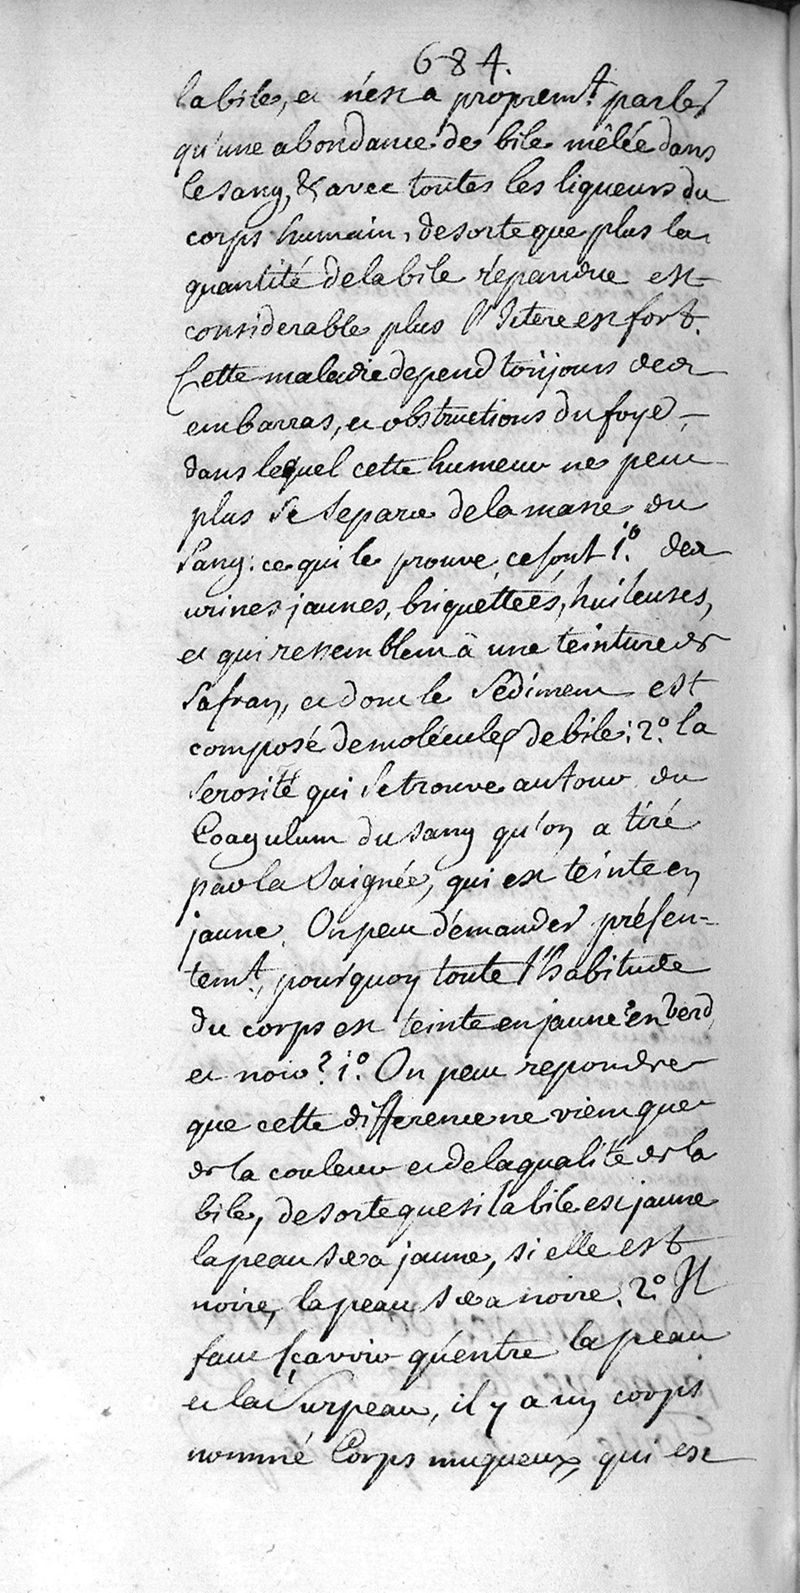 684.
la bile, et n'est a propremt. parler
qu'une abondance de bile mêlée dans
le sang, & avec toutes les liqueurs du
corps humain, desorte que plus la
quantité de la bile répandue est
considerable plus l'Ictere est fort.
Cette maladie depend toûjours des
embarras, et obstructions du foye,
dans lequel cette humeur ne peut
plus se separer de la masse du
sang: ce qui le prouve, ce sont 1.º des
urines jaunes, briquettées, huileuses,
et qui ressemblent à une teinture de
safran, et dont le sédiment est
composé de molécules de bile: 2.º la
serosité qui se trouve autour du
Coagulum du sang qu'on a tiré
par la saignée, qui est teinte en
jaune. On peut démander présen-
temt., pourquoy toute l'habitude
du corps est teinte en jaune, en verd,
et noir? 1.º On peut repondre
que cette difference ne vient que
de la couleur et de la qualité de la
bile, desorte que si la bile est jaune
la peau sera jaune, si elle est
noire, la peau sera noire. 2.º Il
faut sçavoir qu'entre la peau
et la surpeau, il y a un corps
nommé Corps muqueux, qui est